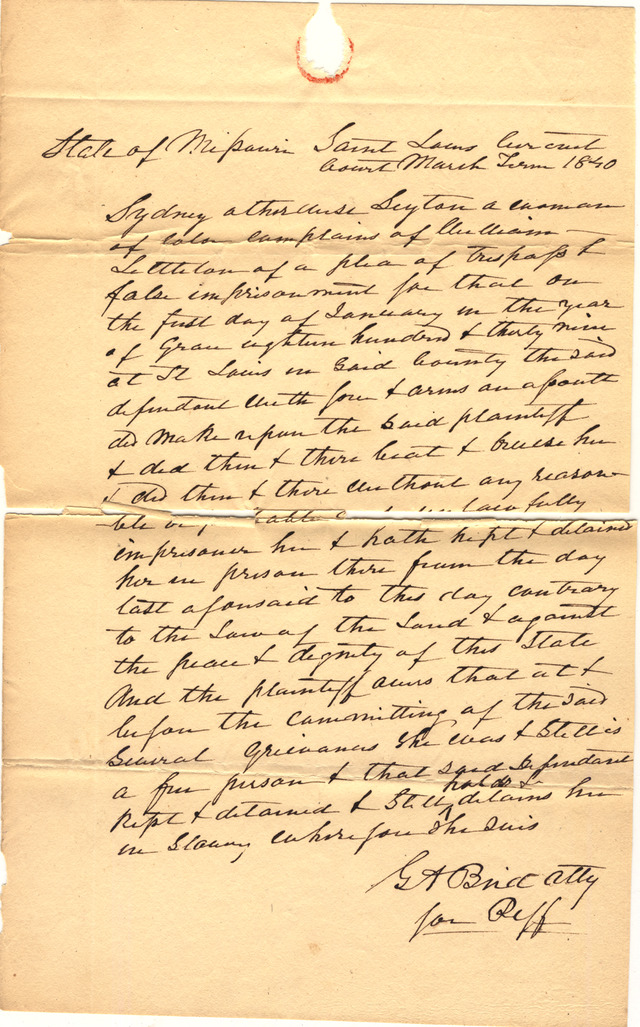 State of Missouri Saint Louis Circuit
Court March Term 1840
Sydney otherwise Leyton a woman
of Color complains of William
Littleton of a plea of trespass &
false imprisonment for that on
the first day of January in the year
of Grace eighteen hundred & thirty nine
at St Louis in said County the said
defendant with force & arms an assault
did make upon the said plaintiff
& did then & there beat & bruise her
& did then & there without any reason
ble or lawfully
imprisoner her & hath kept & detained
her in prison there from the day
last aforesaid to this day contrary
to the Law of the Land & against
the peace & dignity of this State
And the plaintiff avers that at &
before the committing of the said
Several grievances She was & Still is
a free person & that said Defendant
holds &
kept & detained & Still ^ detains her
in Slavery wherefore She Sues
G A Bird Atty
for Plff